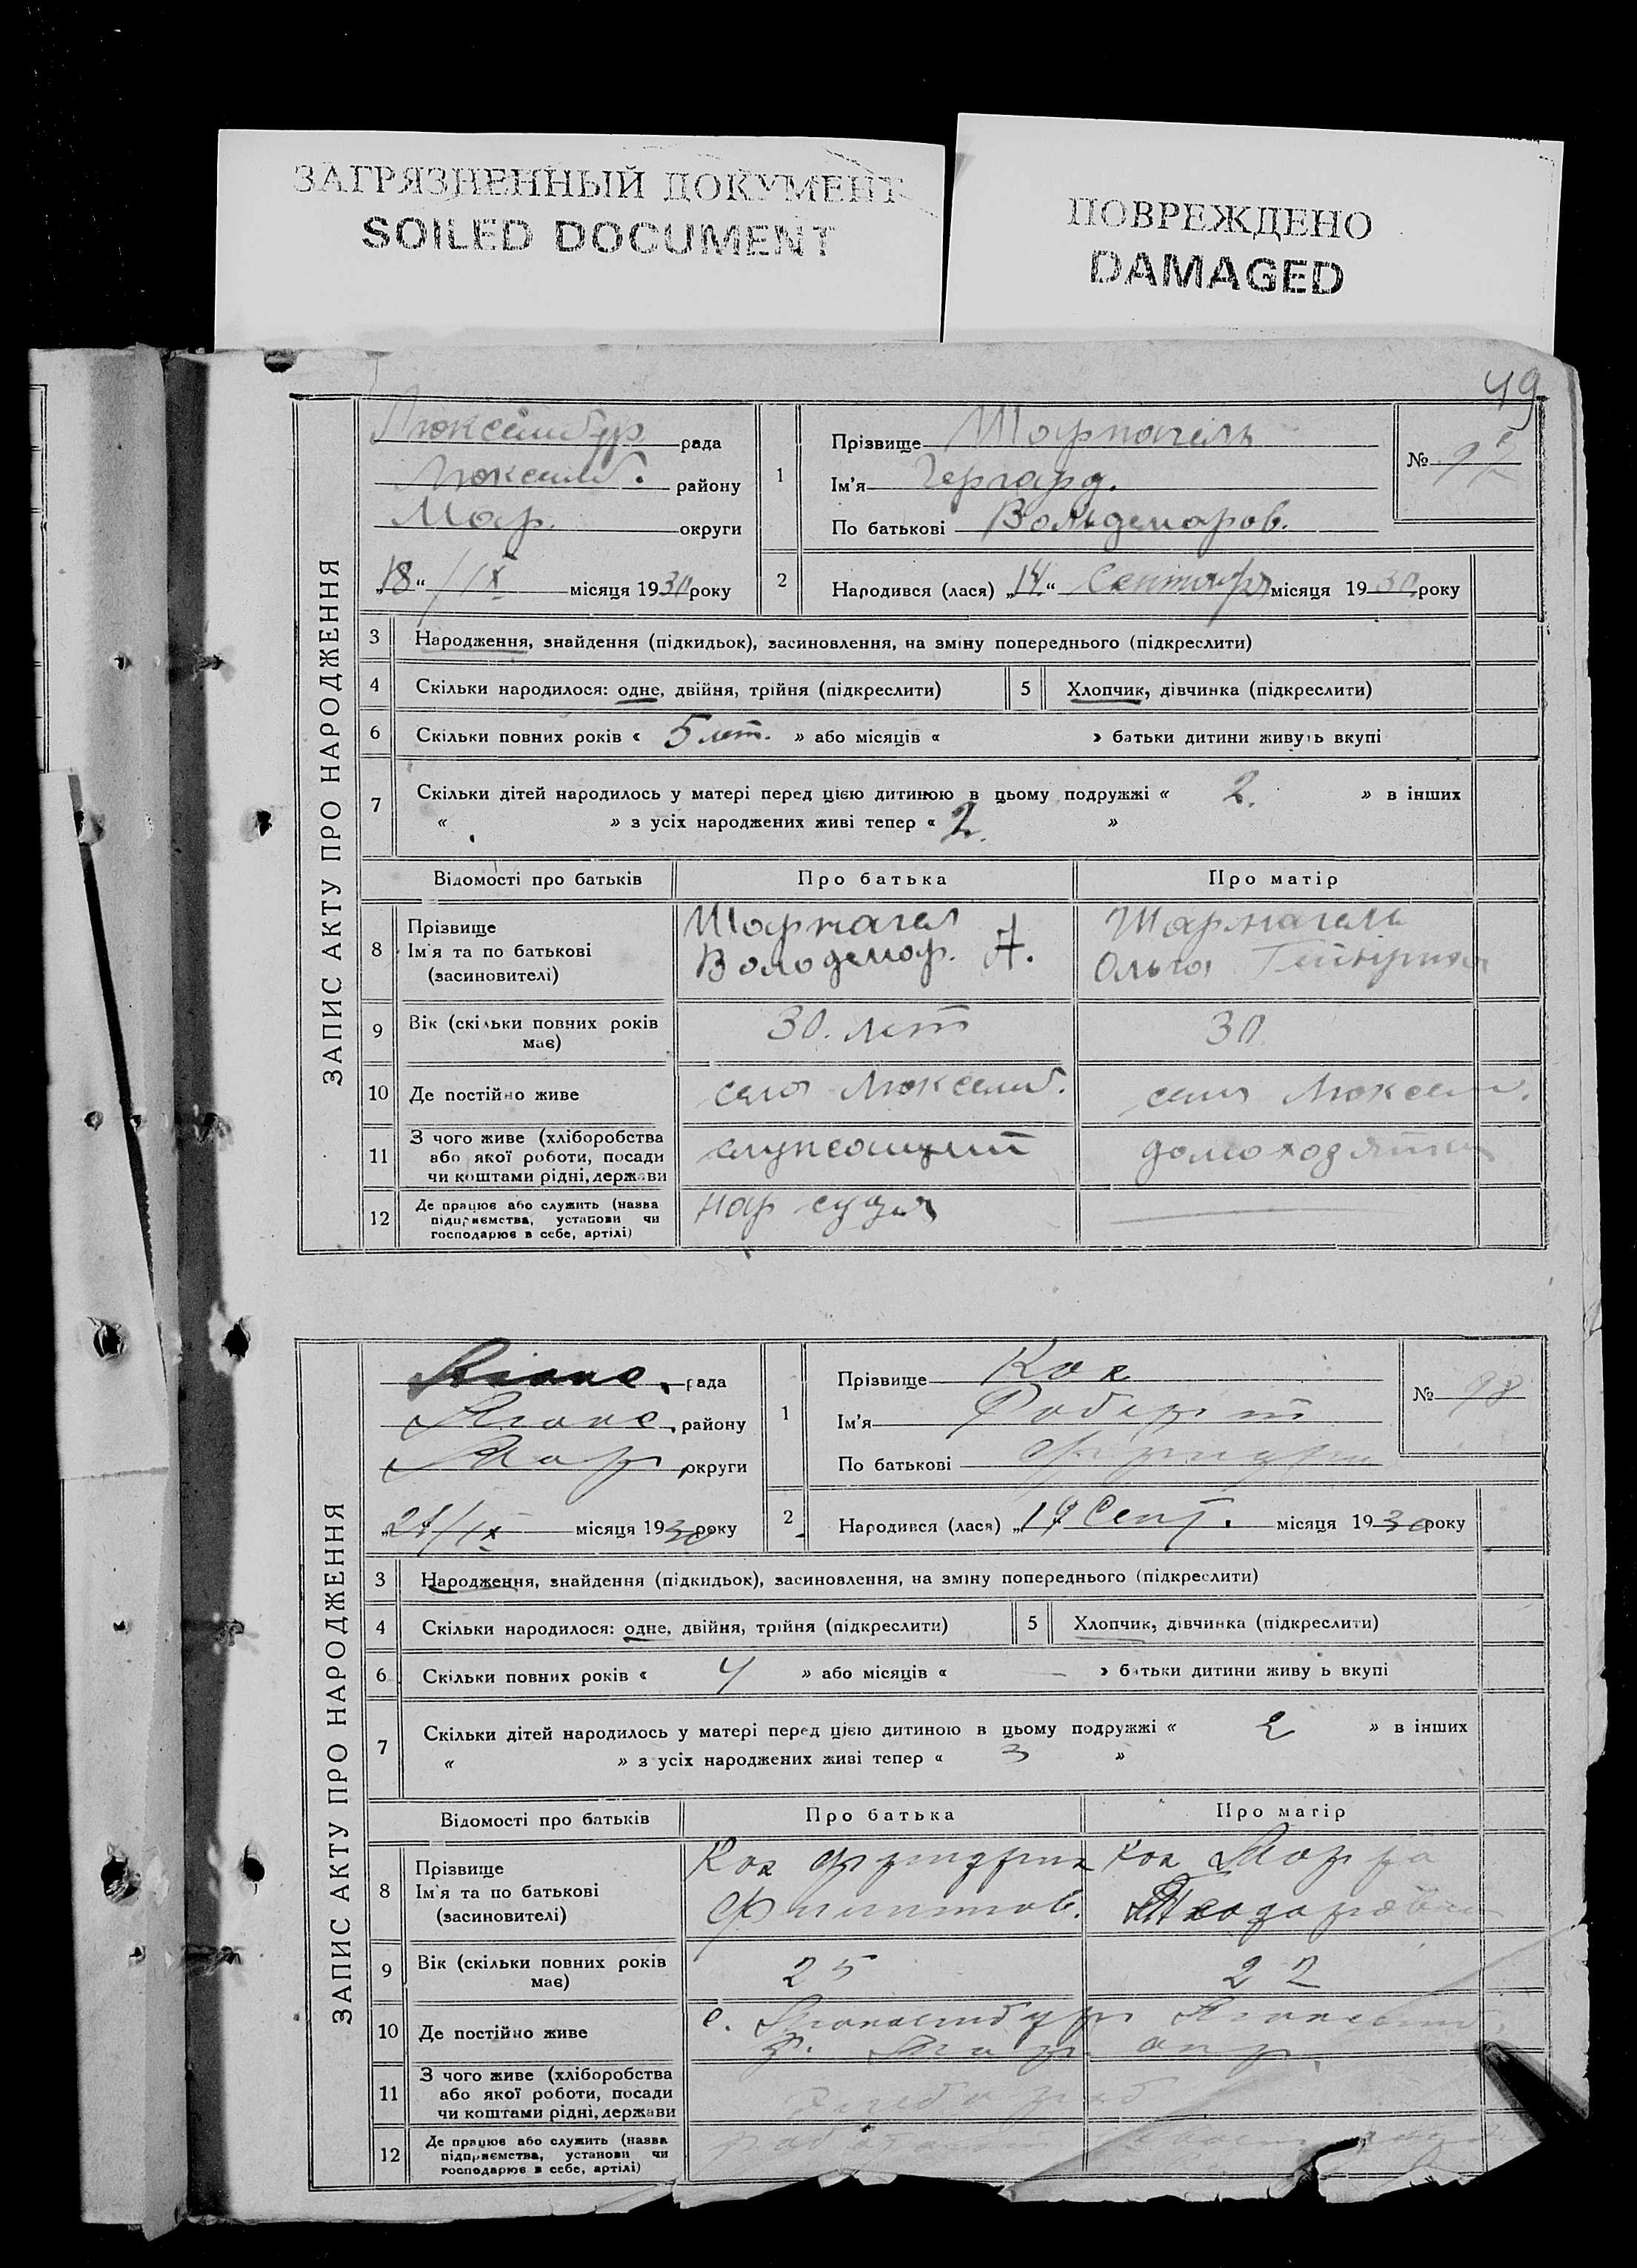 ЗАГРЯЗНЕННЫЙ ДОКУМЕНТ
SOILED DOCUMENT
ПОВРЕЖДЕНО
DAMAGED
49
ЗАПИС АКТУ ПРО НАРОДЖЕННЯ
Люксембур рада
Люксемб. району
Мар. округи
„18“ /IX місяця 1930 року
1
Прізвище Шарнагель
Ім'я Гергард.
По батькові Вольдемаров.
№ 97
2
Народився (лася) „14“ Сентября місяця 1930 року
3 Народження, знайдення (підкидьок), засиновлення, на зміну попереднього (підкреслити)
4 Скільки народилося: одне, двійня, трійня (підкреслити) 5 Хлопчик, дівчинка (підкреслити)
6 Скільки повних років « 5 лет. » або місяців « » батьки дитини живуть вкупі
7 Скільки дітей народилось у матері перед цією дитиною в цьому подружжі « 2. » в інших
« » з усіх народжених живі тепер « 2. »
Відомості про батьків Про батька Про матір
8 Прізвище
Ім'я та по батькові
(засиновителі)
Шарнагел
Володемар. А.
Шарнагель
Ольга
9 Вік (скільки повних років
має)
30. лет
30.
10 Де постійно живе село Люксемб. село Люксем.
11 З чого живе (хліборобства
або якої роботи, посади
чи коштами рідні, держави
служащий
домохозяйка
12 Де працює або служить (назва
підприємства, установи чи
господарює в себе, артілі)
нар судья
ЗАПИС АКТУ ПРО НАРОДЖЕННЯ
Люкс. рада
Люкс. району
Мар. округи
„21/IX місяця 1930 року
1
Прізвище Кох
Ім'я Роберт
По батькові Фридрих
№ 98
2
Народився (лася) „19 Сент. місяця 1930 року
3 Народження, знайдення (підкидьок), засиновлення, на зміну попереднього (підкреслити)
4 Скільки народилося: одне, двійня, трійня (підкреслити) 5 Хлопчик, дівчинка (підкреслити)
6 Скільки повних років « 4 » або місяців « — » батьки дитини живу ь вкупі
7 Скільки дітей народилось у матері перед цією дитиною в цьому подружжі « 2 » в інших
« » з усіх народжених живі тепер « 3 »
Відомості про батьків Про батька Про матір
8 Прізвище
Ім'я та по батькові
(засиновителі)
Кох Фридрих
Филиппов.
Кох Марта
Теодоровна
9 Вік (скільки повних років
має)
25
22
10 Де постійно живе
с. Люксембург Люксемб.
р. Мар. окр.
11 З чого живе (хліборобства
або якої роботи, посади
чи коштами рідні, держави
хлебороб
12 Де працює або служить (назва
підприємства, установи чи
господарює в себе, артілі)